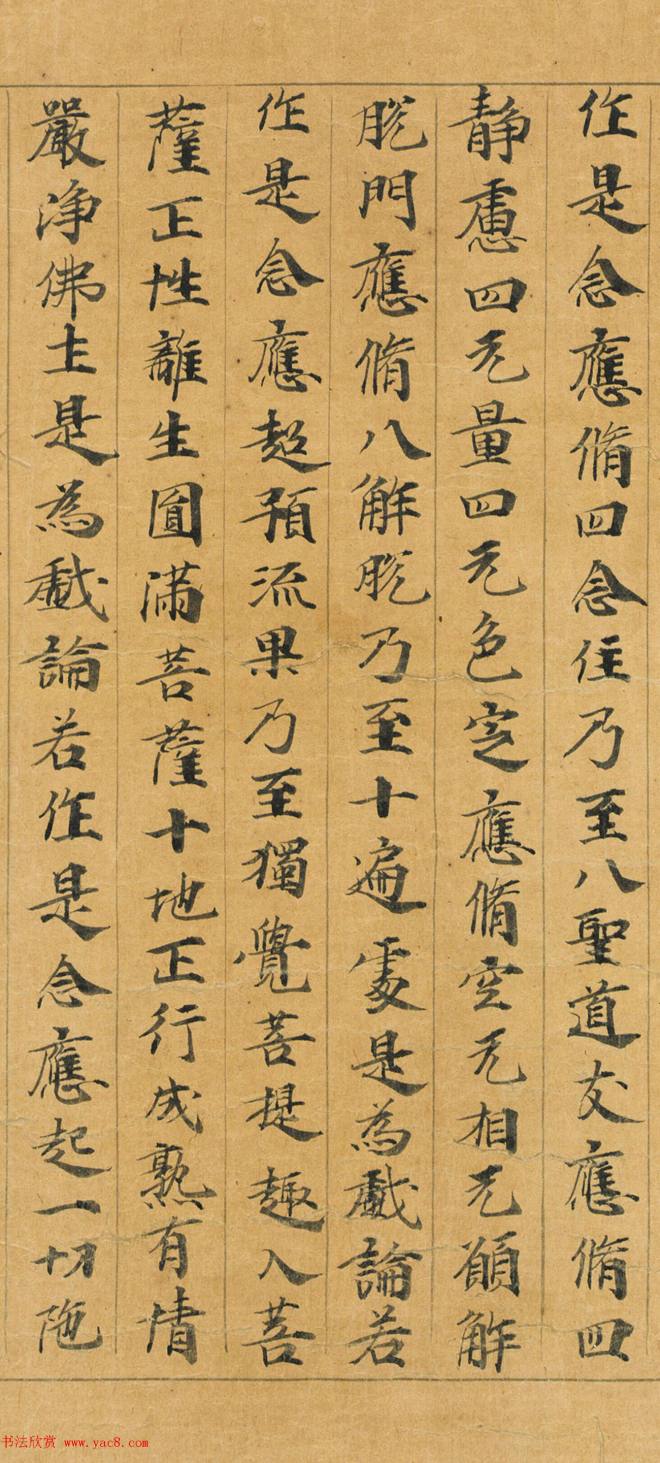 作是念應脩四念住乃至八聖道支應脩四
静慮四无量四无色定應脩空无相无願解
脱門應脩八解脱乃至十遍處是為戲論若
作是念應超預流果乃至獨覺菩提趣入菩
薩正性離生圓滿菩薩十地正行成熟有情
嚴淨佛土是為戲論若作是念應起一切陁
书法欣赏 www.yac8.com